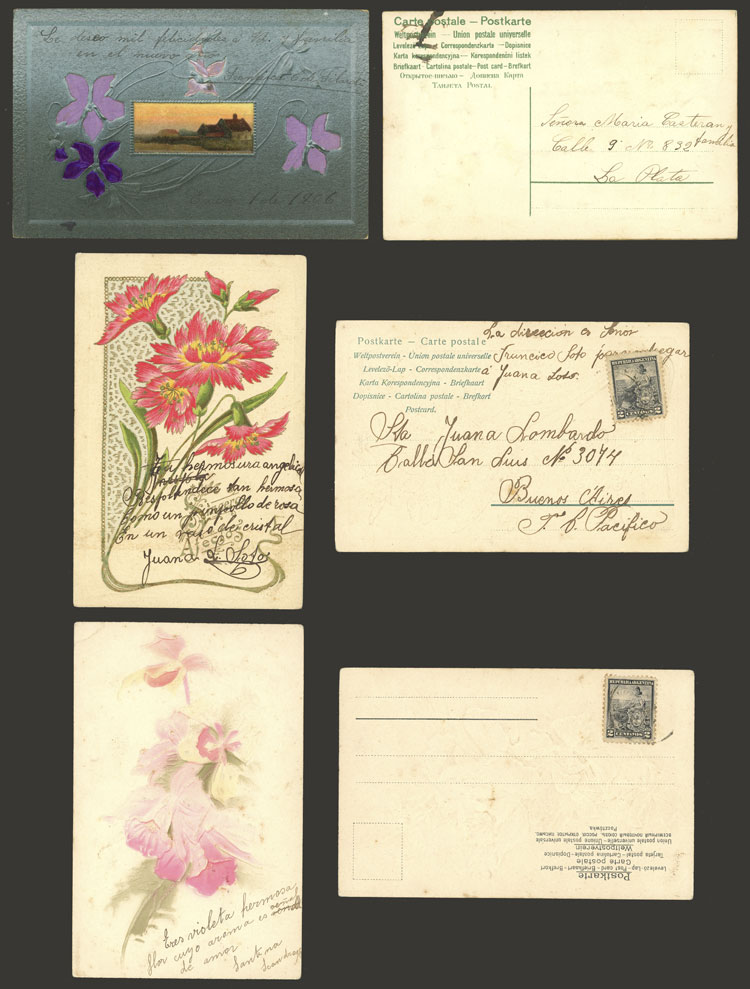 Le deseo mil felicidades a Vd. y familia
en el nuevo año
1 de 1906
Carte postale — Postkarte
Weltpostverein — Union postale universelle
Levelező-Lap — Correspondenzkarte — Dopisnice
Karta korespondencyjna — Korespondenční lístek
Briefkaart — Cartolina postale — Post card — Brefkort
Открытое письмо — Дописна Карта
Tarjeta Postal
Señora Maria Casteran y
familia
Calle 9 No 832
La Plata
Tu hermosura angelica
Resplandece tan hermosa
Como un pimpollo de rosa
En un vaso de cristal
Juana L. Soto
Postkarte — Carte postale
Weltpostverein - Union postale universelle
Levelező-Lap - Correspondenzkarte
Karta Korespondencyjna - Briefkaart
Dopisnice - Cartolina postale - Brefkort
Postcard.
La direccion es Señor
Francisco Soto para entregar
á Juana Soto.
REPUBLICA ARGENTINA
2 CENTAVOS 2
Sta Juana Lombardo
Calle San Luis No 3074
Buenos Aires
F. C. Pacifico
Eres violeta hermosa
flor cuyo aroma es señal
de amor
Santina
REPUBLICA ARGENTINA
2 CENTAVOS 2
Postkarte
Carte postale
Weltpostverein
Levelező-Lap - Post card - Briefkaart - Brefkort
Tarjeta postal - Cartolina postale - Dopisnice
Union postale universelle - Unione postale universale
всемірный почтовый союзъ. Россія. открытое письмо.
Pocztówka